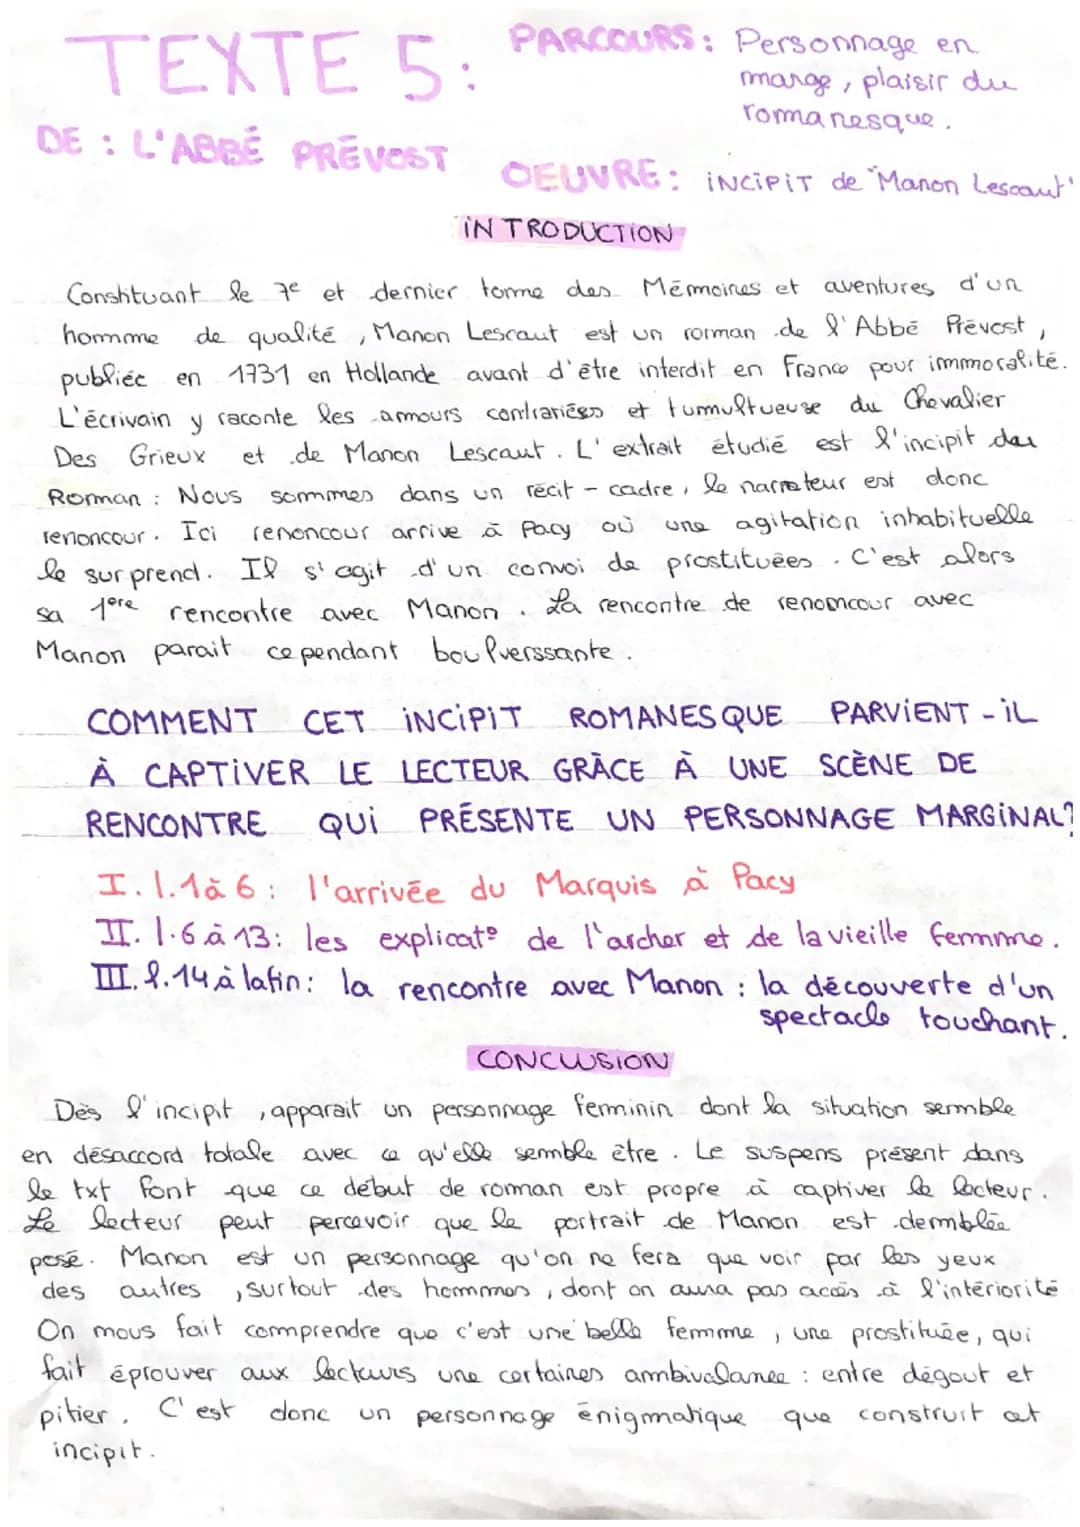 TEXTE 5:
PARCOURS: Personnage en
marge, plaisir du
romanesque.
DE : L'ABBÉ PRÉVOST
OEUVRE: INCIPIT de "Manon Lescaut"
INTRODUCTION
Constituant le 7e et dernier tome des Mémoires et aventures d'un
homme de qualité, Manon Lescaut est un roman de l'Abbé Prévost,
publiéc en 1731 en Hollande avant d'être interdit en France pour immoralité.
L'écrivain y raconte les amours contrariées et tumultueuse du Chevalier
Des Grieux et de Manon Lescaut. L'extrait étudié est l'incipit du
Roman : Nous sommes dans un récit-cadre, le narrateur est donc
renoncour. Ici renoncour arrive à Pacy où une agitation inhabituelle
le surprend. Il s'agit d'un convoi de prostituées. C'est alors
sa 1ère rencontre avec Manon. La rencontre de renoncour avec
Manon parait cependant boulverssante.
COMMENT CET INCIPIT ROMANESQUE PARVIENT-IL
À CAPTIVER LE LECTEUR GRÂCE À UNE SCÈNE DE
RENCONTRE QUI PRÉSENTE UN PERSONNAGE MARGINAL?
I. l.1 à 6 : l'arrivée du Marquis à Pacy
II. l.6 à 13: les explicat° de l'archer et de la vieille femme.
III. l.14 à la fin: la rencontre avec Manon : la découverte d'un
spectacle touchant.
CONCLUSION
Dès l'incipit, apparait un personnage féminin dont la situation semble
en désaccord totale avec ce qu'elle semble être. Le suspens présent dans
le txt font que ce début de roman est propre à captiver le lecteur.
Le lecteur peut percevoir que le portrait de Manon est demblée
posé. Manon est un personnage qu'on ne fera que voir par les yeux
des autres, surtout des hommes, dont on aura pas accès à l'intériorité
On nous fait comprendre que c'est une belle femme, une prostituée, qui
fait éprouver aux lecteurs une certaines ambivalance : entre dégout et
pitier. C'est donc un personnage énigmatique que construit cet
incipit.